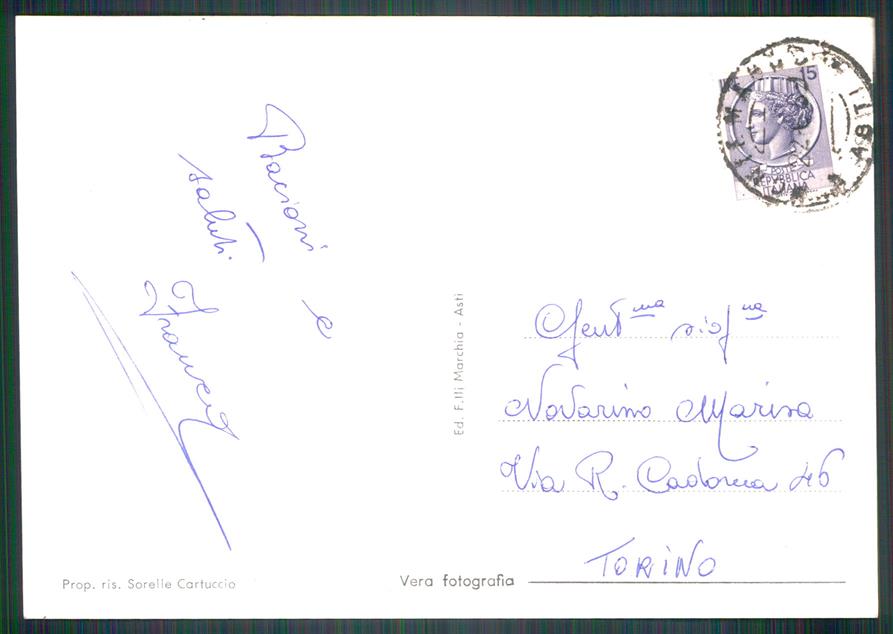 Bacioni e
saluti
Gent.ma sig.na
Novarino Marisa
Via R. Cadorna 46
TORINO
Ed. F.lli Marchia - Asti
Prop. ris. Sorelle Cartuccio
Vera fotografia
15
POSTE
REPVBBLICA
ITALIANA